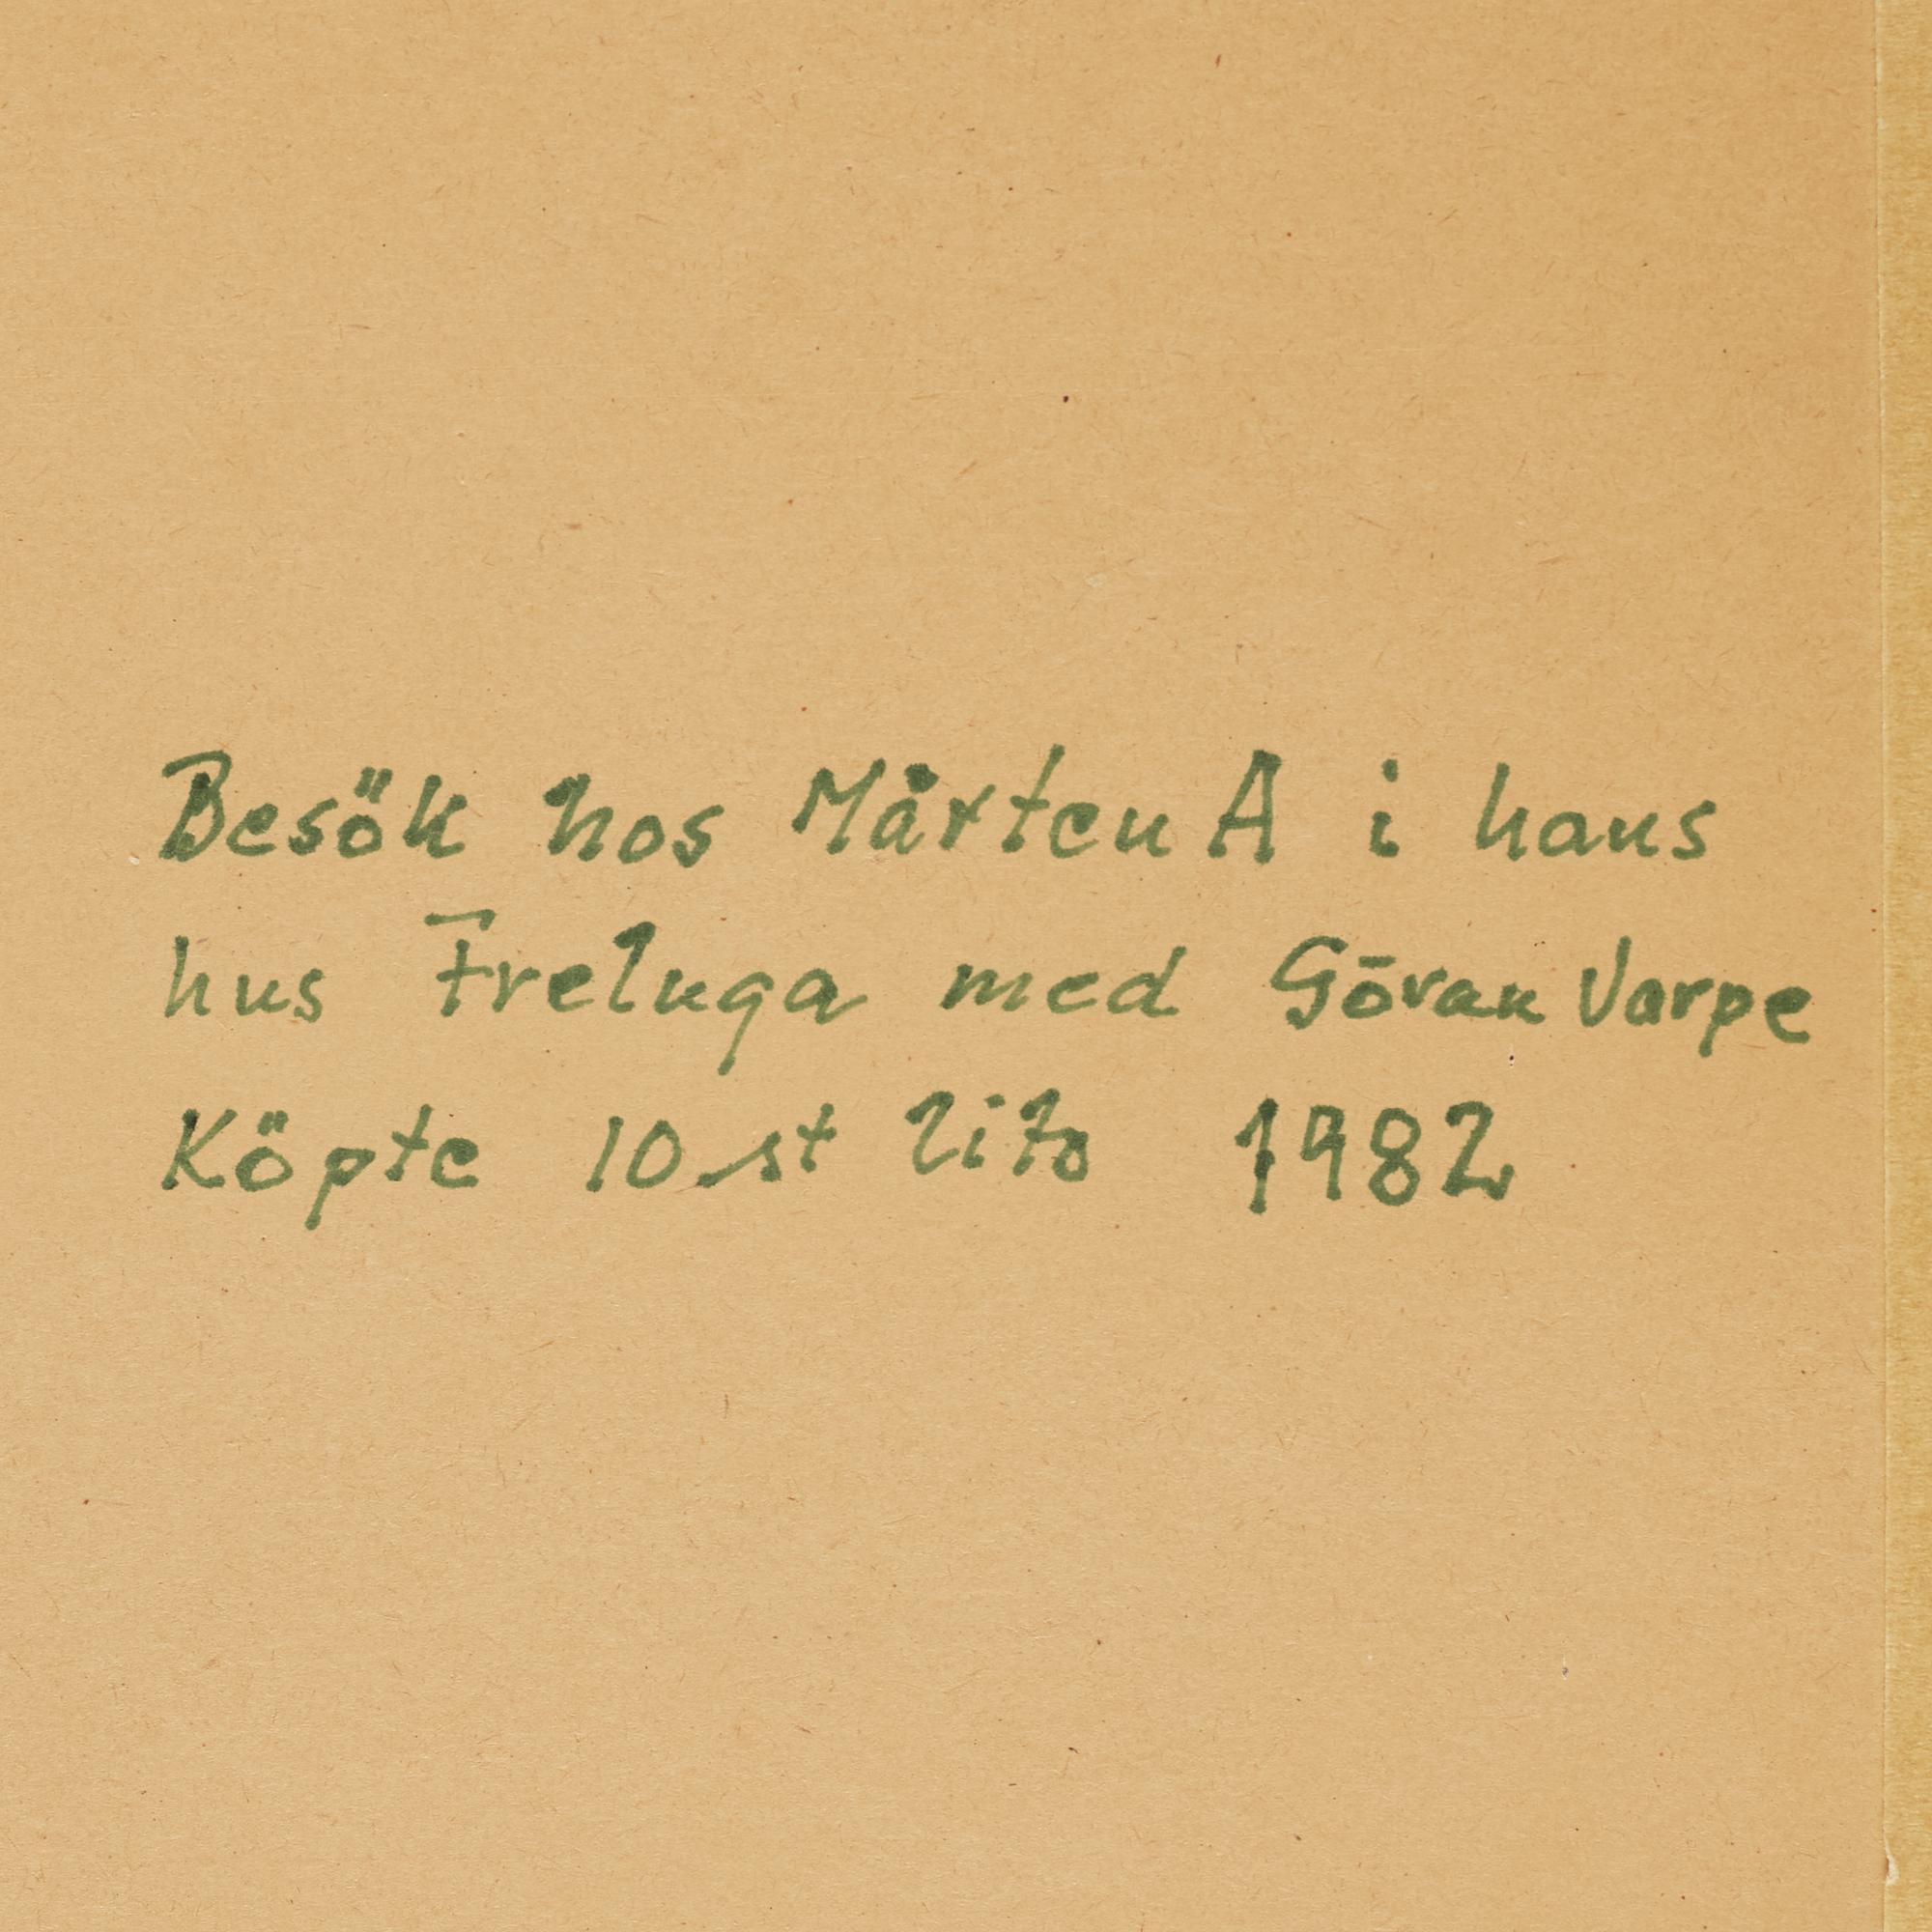 Besök hos Mårten A i hans
hus Freluga med Göran Varpe
Köpte 10 st lito 1982